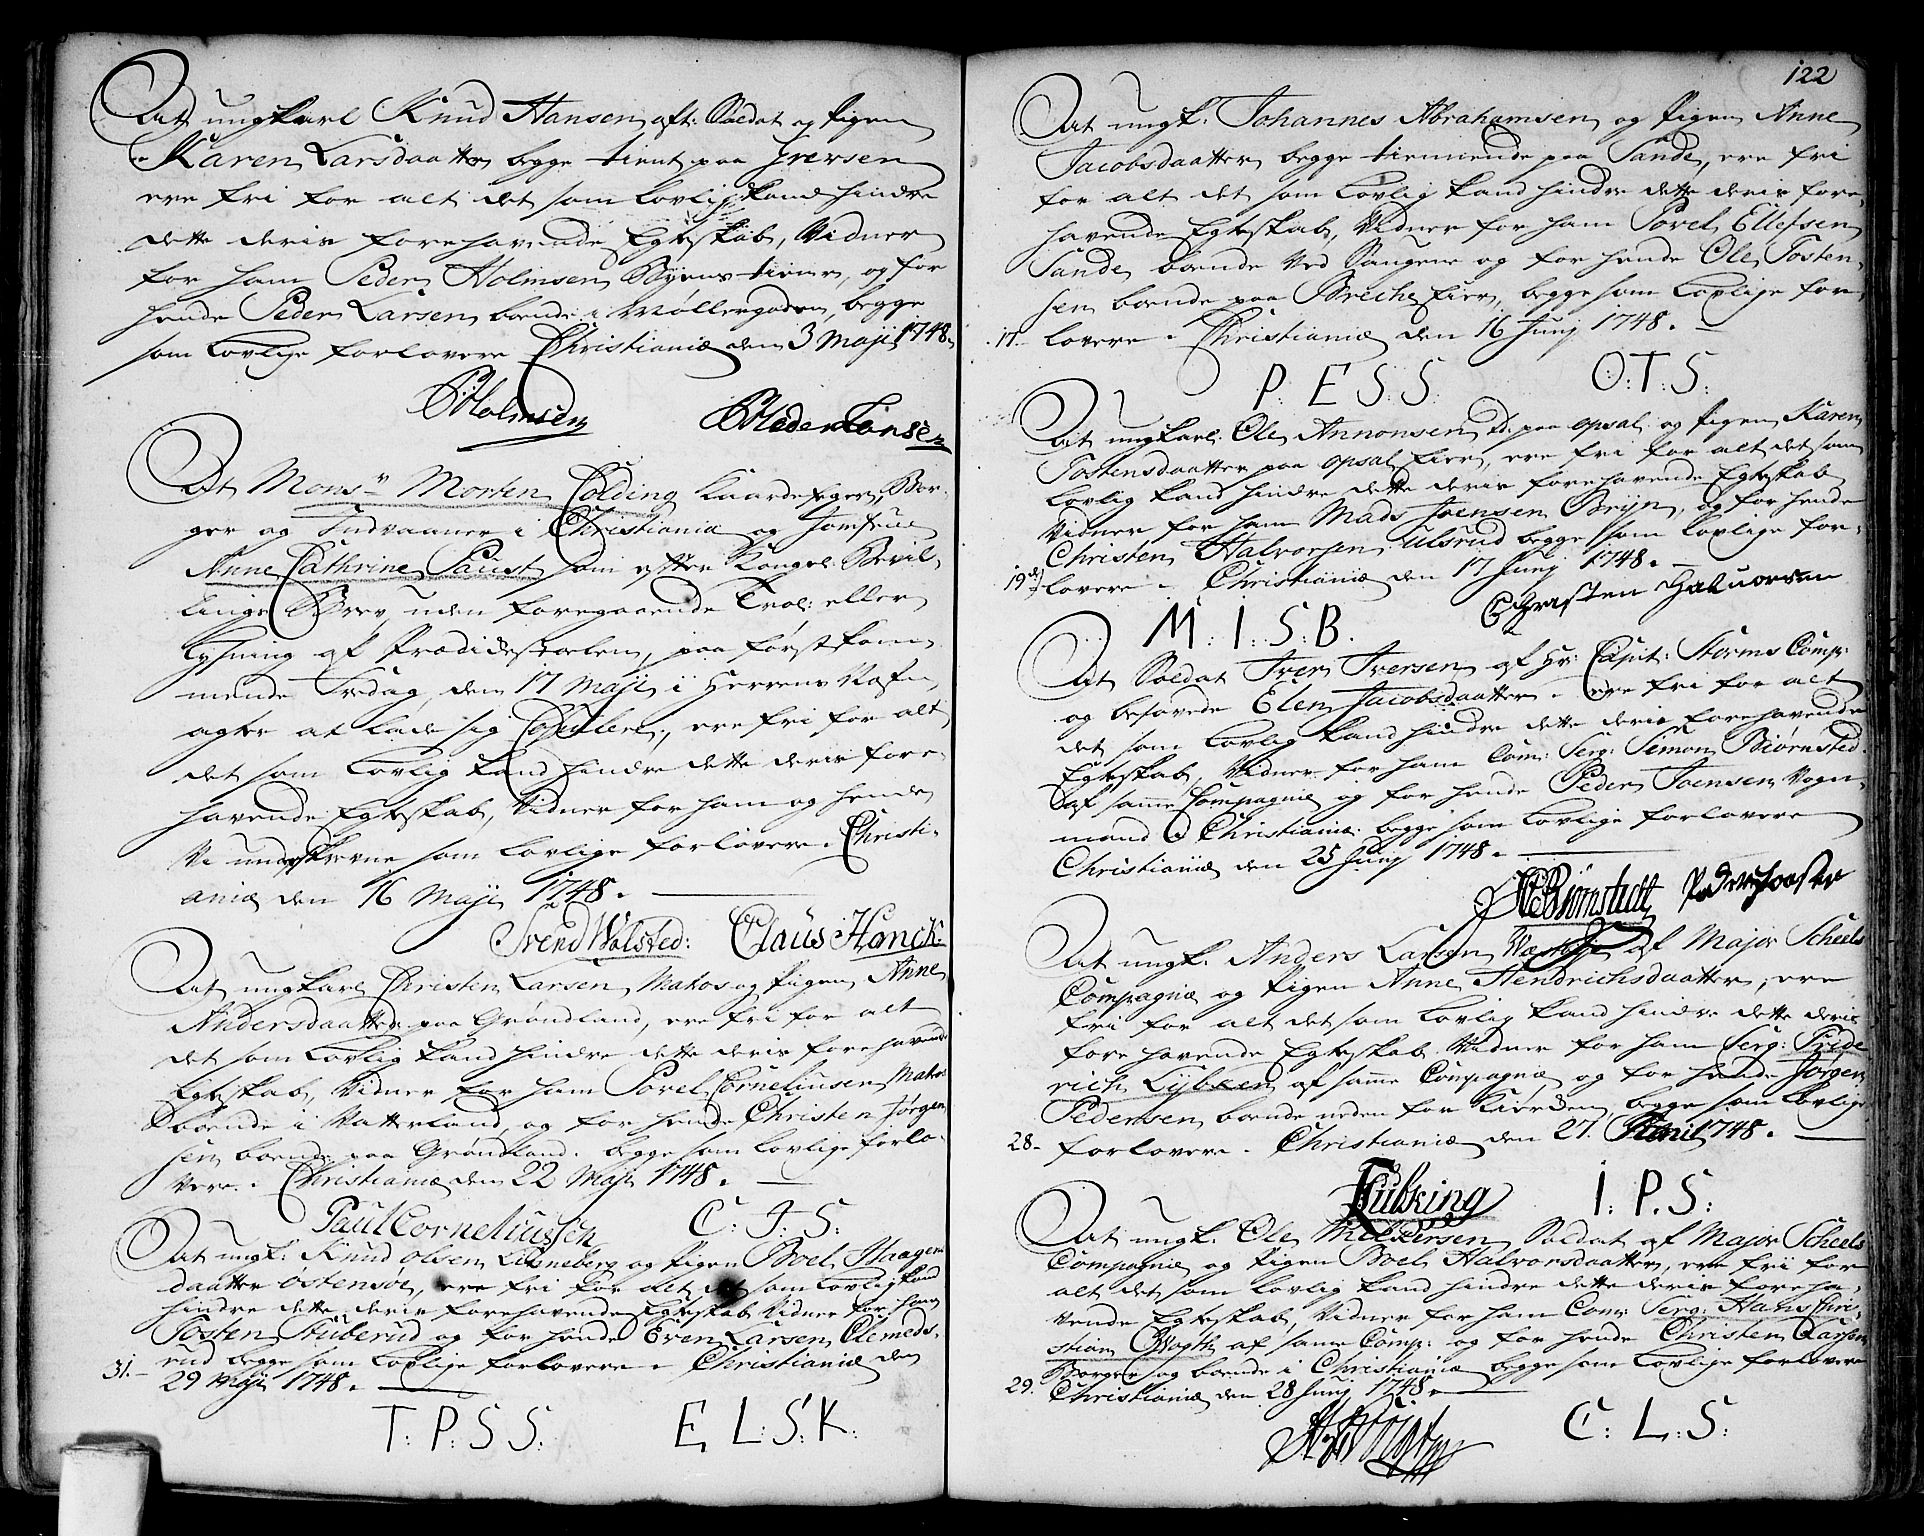 At ungkarl Knud Hansen aft: Soldat og Pigen
Karen Larsdaatter begge tient paa Grersen
ere fri for alt det som lovlig kand hindre
dette deris forehavende Egteskab, Vidner
for ham Peder Holmsen Byens tiener, og for
hende Peder Larsen boende i Møllergaden, begge
som lovlige forlovere Christianiæ den 3 Maji 1748.
PHolmsen Peder Larsen
At Monsr Morten Colding Kaardefeger, Bor-
ger og Indvaaner i Christiania og Jomfrue
Anne Cathrine Paust som efter Kongel: Bevil-
lings Brev, uden foregaaende Trol: eller
Lysning af Prædickestoelen, paa førstkom-
mende Fredag, den 17 Maji i Herrens Nafn,
agter at lade sig Copulere, ere fri for alt
det som lovlig kand hindre dette deris fore-
havende Egteskab, Vidner for ham og hende
Vi underskrevne som lovlige forlovere. Christi-
aniæ den 16 Maji 1748.
Svend Wolsted: Claus Hanck
At ungkarl Christen Larsen Matros og Pigen Anne
Andersdaatter paa Grønland, ere fri for alt
det som lovlig kand hindre dette deris forehavende
Egteskab, Vidner for ham Povel Corneliusen Matros
boende i Vatterland, og for hende Christen Jørgen-
sen boende paa Grønland. begge som lovlige forlo-
vere. Christianiæ den 22 Maji 1748.
Paul Corneliussen C: J: S:
At ungk: Knud Olsen og Pigen Boel Haagens
daatter Østensøe, ere fri for alt det som lovlig kand
hindre dette deris forehavende Egteskab Vidner for ham
Tosten Stuberud og for hende Even Larsen Clemeds-
rud begge som lovlige forlovere. Christianiæ den
31.
29 Maji 1748.
T: P: S S: E L: S: K.
122
At ungk: Johannes Abrahamsen og Pigen Anne
Jacobsdaatter begge tiennende paa Sande, ere fri
for alt det som lovlig kand hindre dette deris fore-
havende Egteskab, Vidner for ham Povel Ellefsen
Sande boende ved Saugene og for hende Ole Tosten-
sen boende paa Breche Eier, begge som lovlige for-
17. lovere. Christianiæ den 16 Junj 1748.
P: E S: S: O: T: S:
At ungkarl: Ole Annonsen td. paa Opsal og Pigen Karen
Tostensdaatter paa Opsal Eier, ere fri for alt det som
lovlig kand hindre dette deris forehavende Egteskab
Vidner for ham Mads Joensen Bryn, og for hende
Christen Halvorsen Ulsrud begge som lovlige for-
19de lovere. Christianiæ den 17 Junj 1748.
M: I: S: B. Christen Haluorsen
At Soldat Iver Iversen af Hr: Capit: Storms Comp:
og besovede Elen Jacobsdaatter. ere fri for alt
det som lovlig kand hindre dette deris forehavende
Egteskab, Vidner for ham Com: Serg: Simon Biørnsted
af samme Compagnie og for hende Peder Joensen Vogn-
mand i Christiania. begge som lovlige forlovere
Christianiæ den 25 Junj 1748.
Biørnstedt
At ungk: Anders Larsen af Major Scheels
Compagnie og Pigen Anne Hendrichsdaatter, ere
fri for alt det som lovlig kand hindre dette deris
forehavende Egteskab Vidner for ham Serg: Fride
rich Lybken af samme Compagnie, og for hende Jørgen
Pedersen boende neden for Kiørden, begge som lovlige
28. forlovere. Christianiæ den 27. Junii 1748.
Lubking I: P. S:
At ungk: Ole Soldat af Major Scheels
Compagnie og Pigen Boel Halvorsdaatter, ere fri for
alt det som lovlig kand hindre dette deris foreha-
vende Egteskab, Vidner for ham Com: Serg: Hans Chris-
stian af samme Comp: og for hende Christen Larsen
Borger og boende i Christianiæ begge som lovlige forlovere
29. Christianiæ den 28 Junj 1748.
C: L: S: